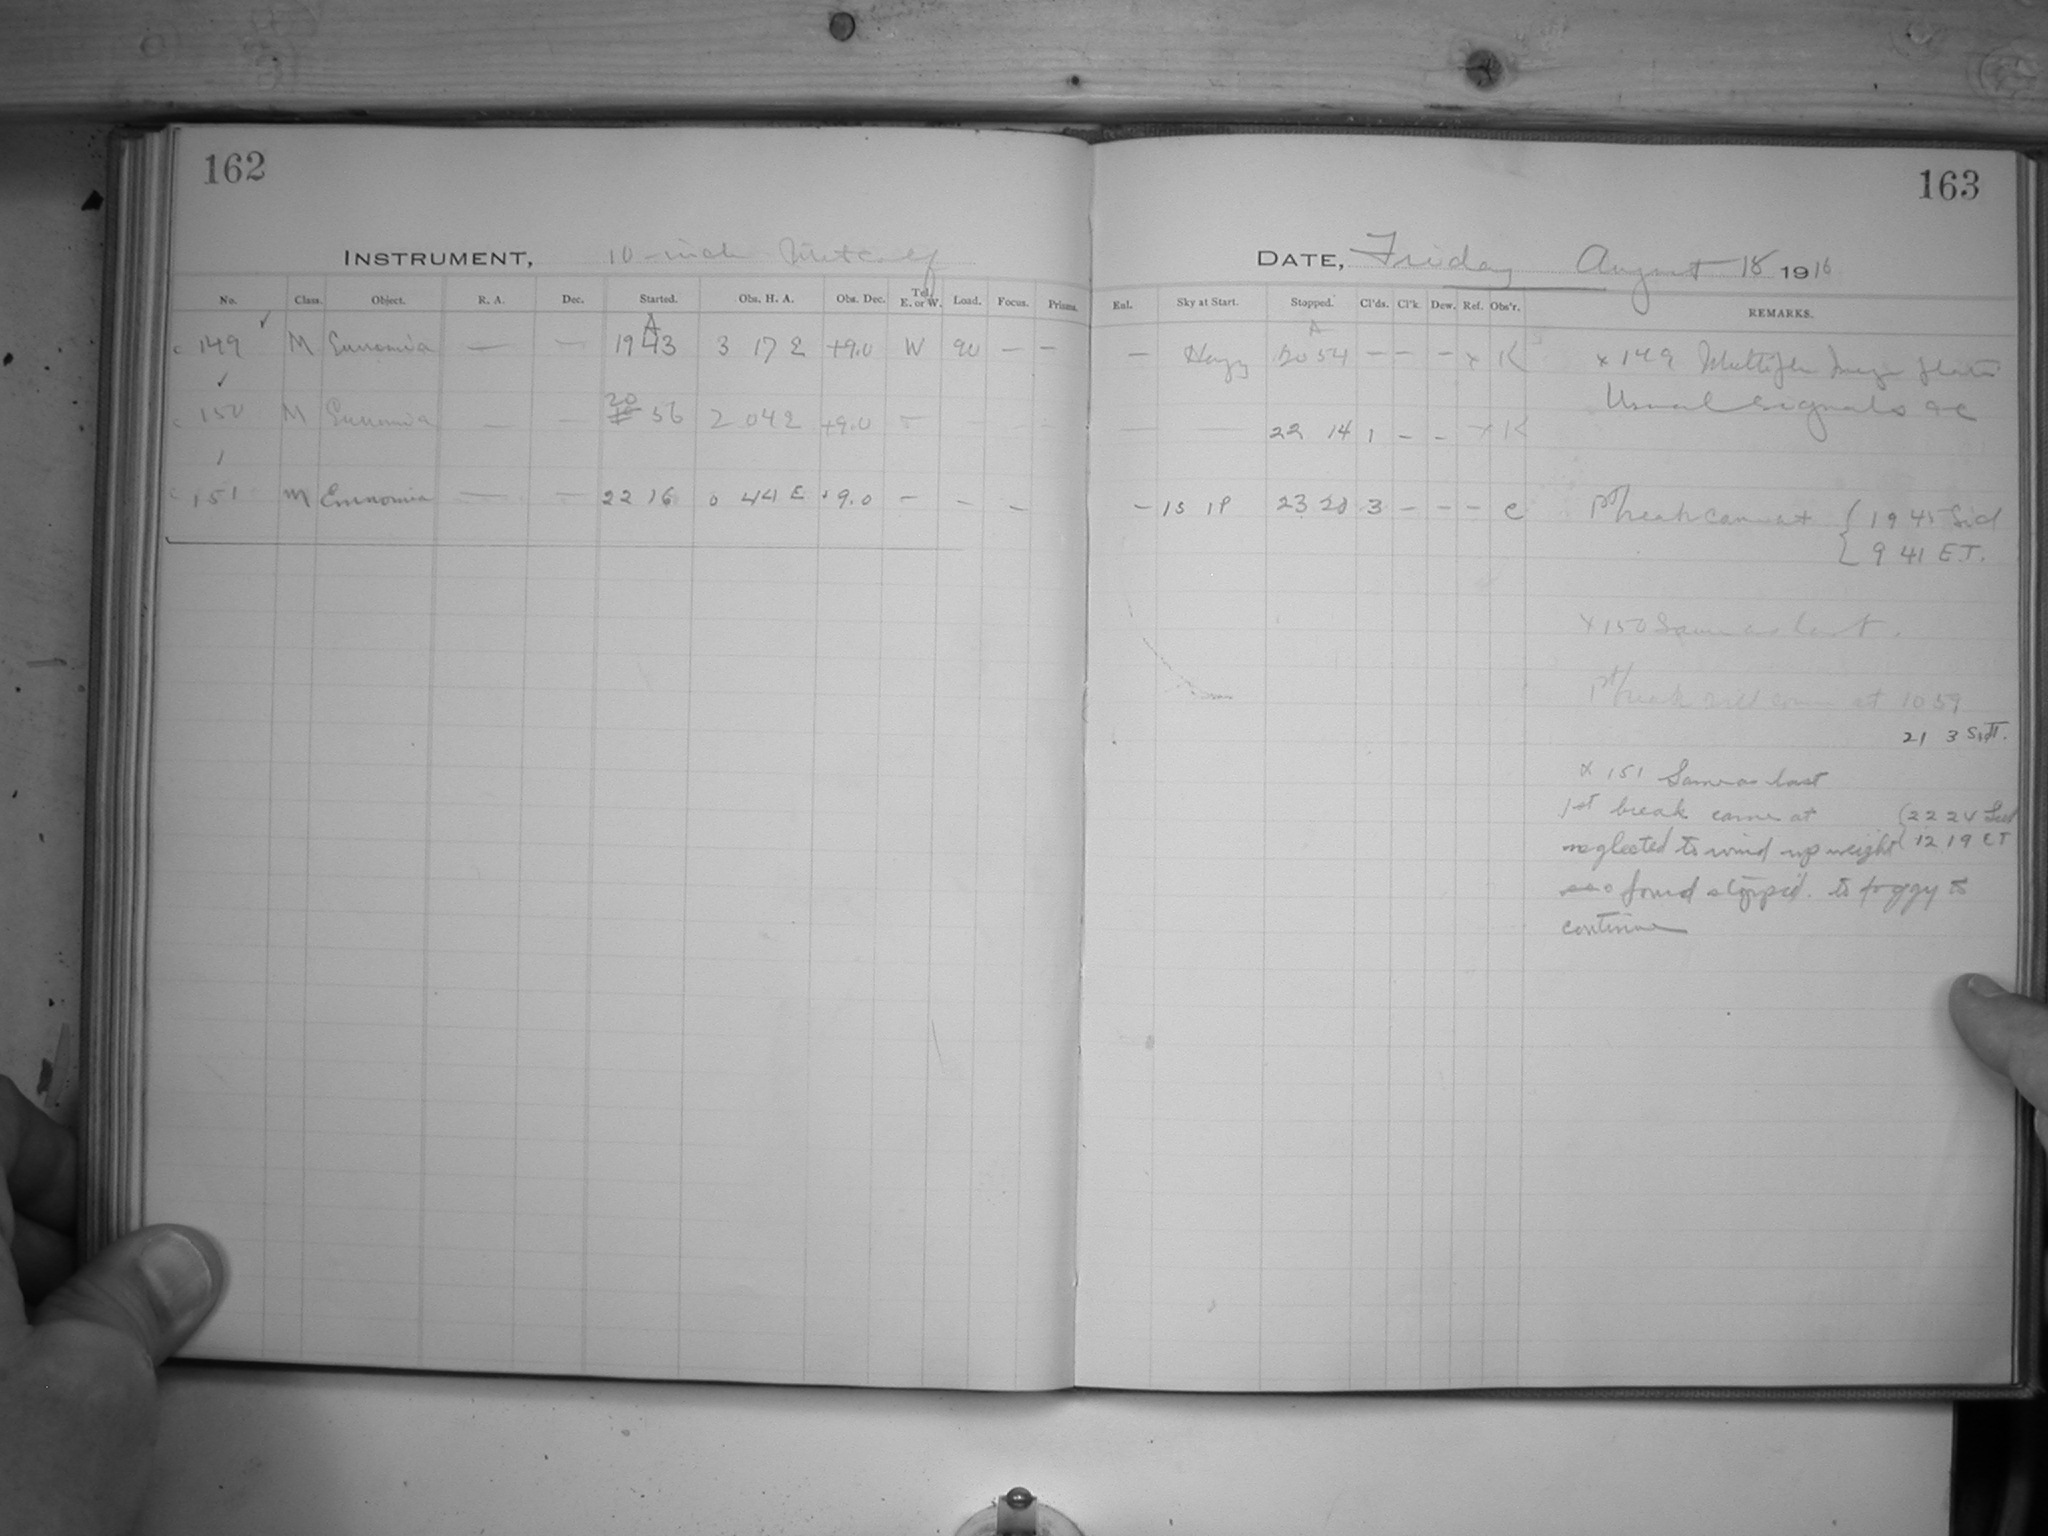 162
INSTRUMENT, 10-inch Metcalf
No. Class. Object. R. A. Dec. Started. Obs. H. A. Obs. Dec. Tel. E. or W. Load. Focus. Prisms.
c 149 ✓ M Eunomia — — 19 43 A 3 17 E +9.0 W 90 — —
c 150 ✓ M Eunomia — — 20 56 2 04 E +9.0 —
c 151 M Eunomia — — 22 16 0 44 E +9.0 — — —
163
DATE, Friday August 18 1916
Eul. Sky at Start. Stopped. Cl'ds. Cl'k. Dew. Ref. Obs'r. REMARKS.
— Hazy 20 54 A — — — x K x 149 Multiple Image plate
Usual signals &c
— — 22 14 1 — — x K
— 1S 1P 23 20 3 — — — C 1st break came at { 19 45 Sid
9 41 E.T.
x 150 Same as last.
1st break will come at 10 59
21 3 Sid T.
x 151 Same as last
1st break came at ( 22 24 Sid
neglected to wind up weight ( 12 19 ET
found stopped. to foggy to
continue